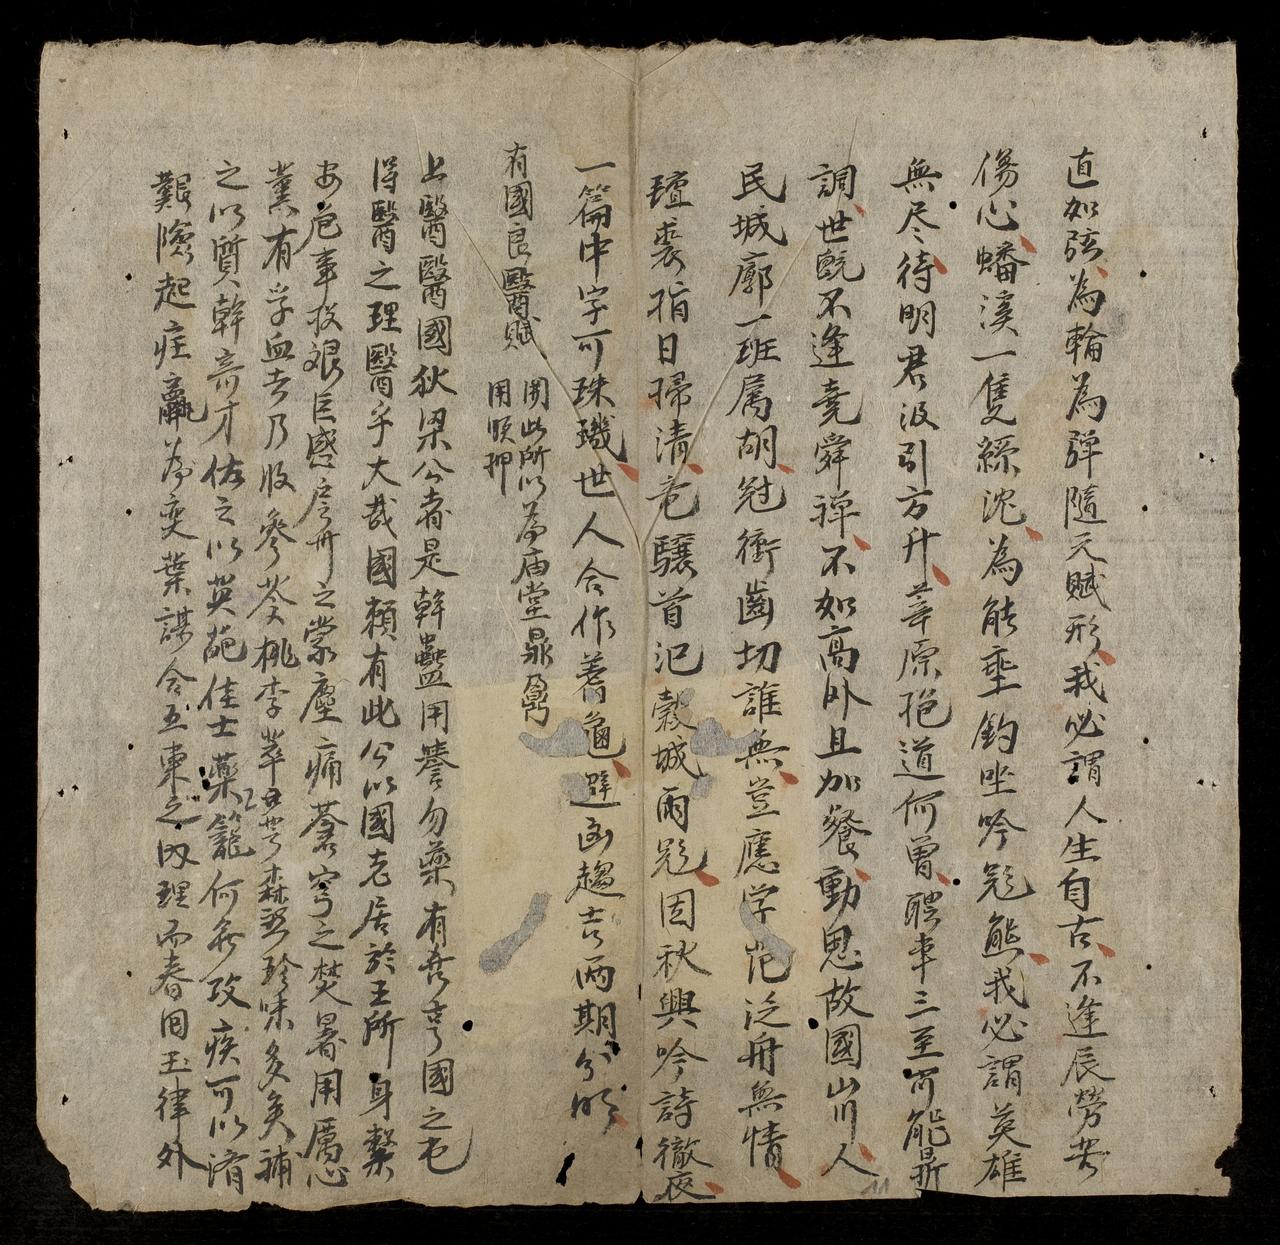 直如弦為輪為弾隨天賦形我必謂人生自古不逢辰勞苦
傷心蟠溪一隻綠沈為能垂釣坐吟兆熊我必謂英雄
無尽待明君汲引方升莘原抱道何曾聘車三至那能鼎
調世既不逢堯舜禅不如高卧且加餐動思故國山川人
民城廓一班属胡冠衝齒切誰無豈應学范泛舟無情
璮裘指日掃清竜驤首汜榖城雨兆因秋興吟詩徹夜
一篇中字可珠璣世人合作蓍龜避凶趨吉兩期分明
有國良醫賦 用順押 開此所以為庙堂鼎鼐
上醫醫國狄梁公者是幹蠱用譽勿藥有吾亨國之屯
得醫之理醫乎大哉國頼有此公以國老居於王所身繫
安危事投艱巨感彦冊之蒙塵痛蒼穹之焚暑用厲心
薰有孚血去乃股參苓桃李萃森然珍味多矣補
之以質幹奇才佐之以英葩佳士藥籠何多攻疾可以濟
艱險起疰羸為奕葉謀合五東之内理而春回玉律外